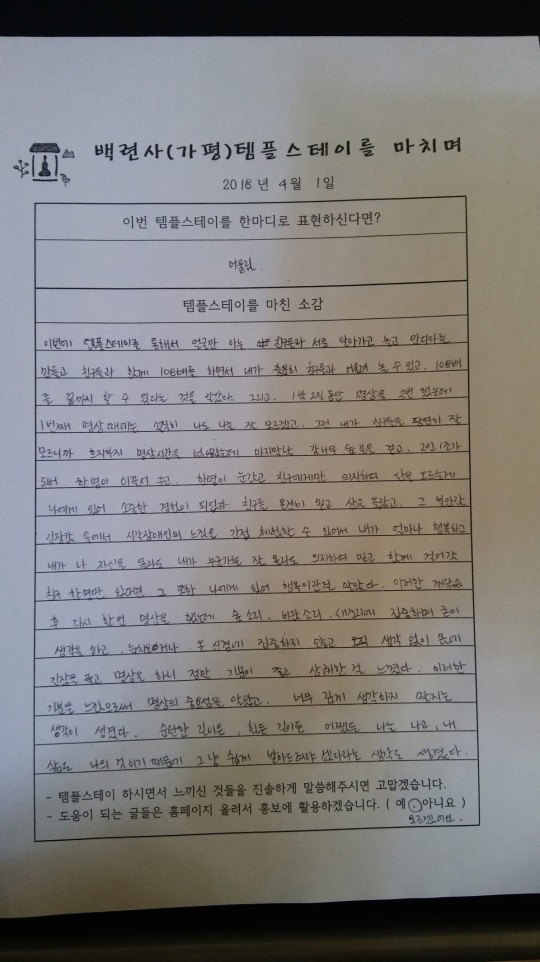 백련사(가평)템플스테이를 마치며
2018 년 4 월 1 일
이번 템플스테이를 한마디로 표현하신다면?
어울림.
템플스테이를 마친 소감
이번에 템플스테이를 통해서 얼굴만 아는 친구들과 서로 알아가고 놀고 만다라를
만들고 친구들과 함께 108배를 하면서 내가 충분히 놀 수 있고, 108배
를 끝까지 할 수 있다는 것을 알았다. 그리고, 1박 2일 동안 명상을 2번 했는데
1번째 명상 때에는 솔직히 나도 나를 잘 모르겠고, 그런 내가 친구들을 당연히 잘
모르니까 흐지부지 명상시간을 마지막날 잣나무 숲길을 걷고, 2인 1조가
되어 한명이 이끌어 주고 한명이 눈감고 친구에게만 의지하며 산을 오르는게
나에게 있어 소중한 경험이 되었다. 친구를 온전히 믿고 산을 올랐고, 그 불안감,
긴장감 속에서 시각장애인의 느낌을 간접 체험할 수 있어서 내가 얼마나 행복하고
내가 나 자신을 몰라도 내가 누군가를 잘 몰라도 의지하며 믿고 함께 걸어갈
친구 한명만 있다면 그 또한 나에게 있어 행복이란걸 알았다. 이러한 깨달음
후 다시 한번 명상을 했는데 숲소리, 바람소리, 새소리에 집중하며
생각을 하고, 못 신경에 집중하지 않고 오직 생각 없이 몸에
긴장을 풀고 명상을 하니 정말 기분이 좋고 상쾌한 걸 느꼈다. 이러한
기분을 느낌으로써 명상의 중요성을 알았고, 너무 깊게 생각하지 말자는
생각이 생겼다. 순탄한 길이든, 힘든 길이든 어쨌든 나는 나고, 내
삶도 나의 것이기 때문에 그냥 쉽게 받아드려야 겠다라는 생각도 생겼다.
- 템플스테이 하시면서 느끼신 것들을 진솔하게 말씀해주시면 고맙겠습니다.
- 도움이 되는 글들은 홈페이지 올려서 홍보에 활용하겠습니다. ( 예 , 아니요 )